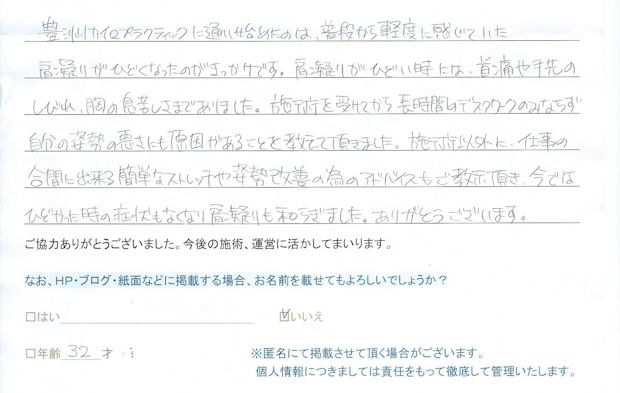 豊洲カイロプラクティックに通い始めたのは、普段から軽度に感じていた
肩凝りがひどくなったのがきっかけです。肩凝りがひどい時には、首痛や手先の
しびれ、胸の息苦しさまでありました。施術を受けてから長時間のデスクワークのみならず
自分の姿勢の悪さにも原因があることを教えて頂きました。施術以外に、仕事の
合間に出来る簡単なストレッチや姿勢改善の為のアドバイスもご教示頂き、今では
ひどかった時の症状もなくなり肩凝りも和らぎました。ありがとうございます。
ご協力ありがとうございました。今後の施術、運営に活かしてまいります。
なお、HP・ブログ・紙面などに掲載する場合、お名前を載せてもよろしいでしょうか？
□はい ☑いいえ
□年齢 32 才
※匿名にて掲載させて頂く場合がございます。
個人情報につきましては責任をもって徹底して管理いたします。